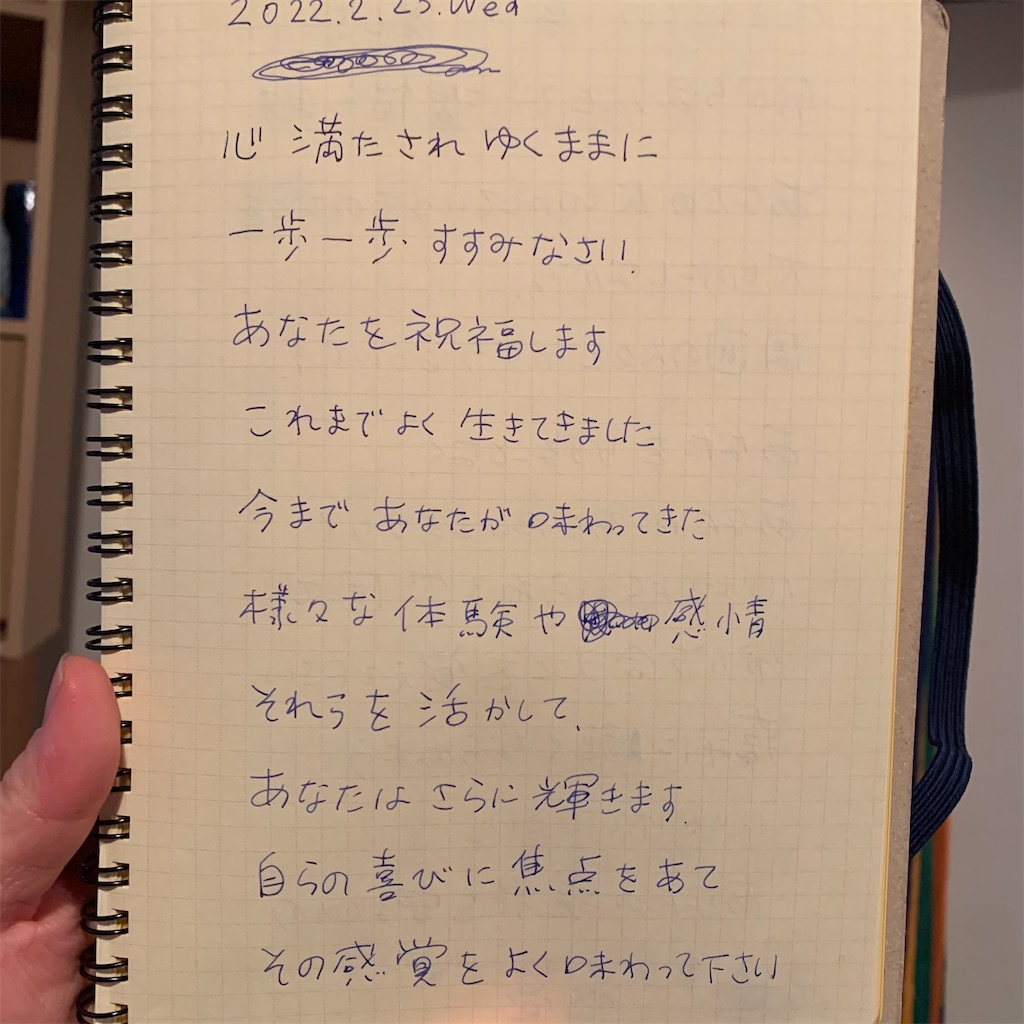 2022.2.23.Wed
心 満たされ ゆくままに
一歩一歩 すすみなさい
あなたを祝福します
これまで よく 生きてきました
今まで あなたが 味わってきた
様々な 体験や 感情
それらを 活かして、
あなたは さらに 輝きます。
自らの 喜びに 焦点をあて
その感覚を よく味わって下さい